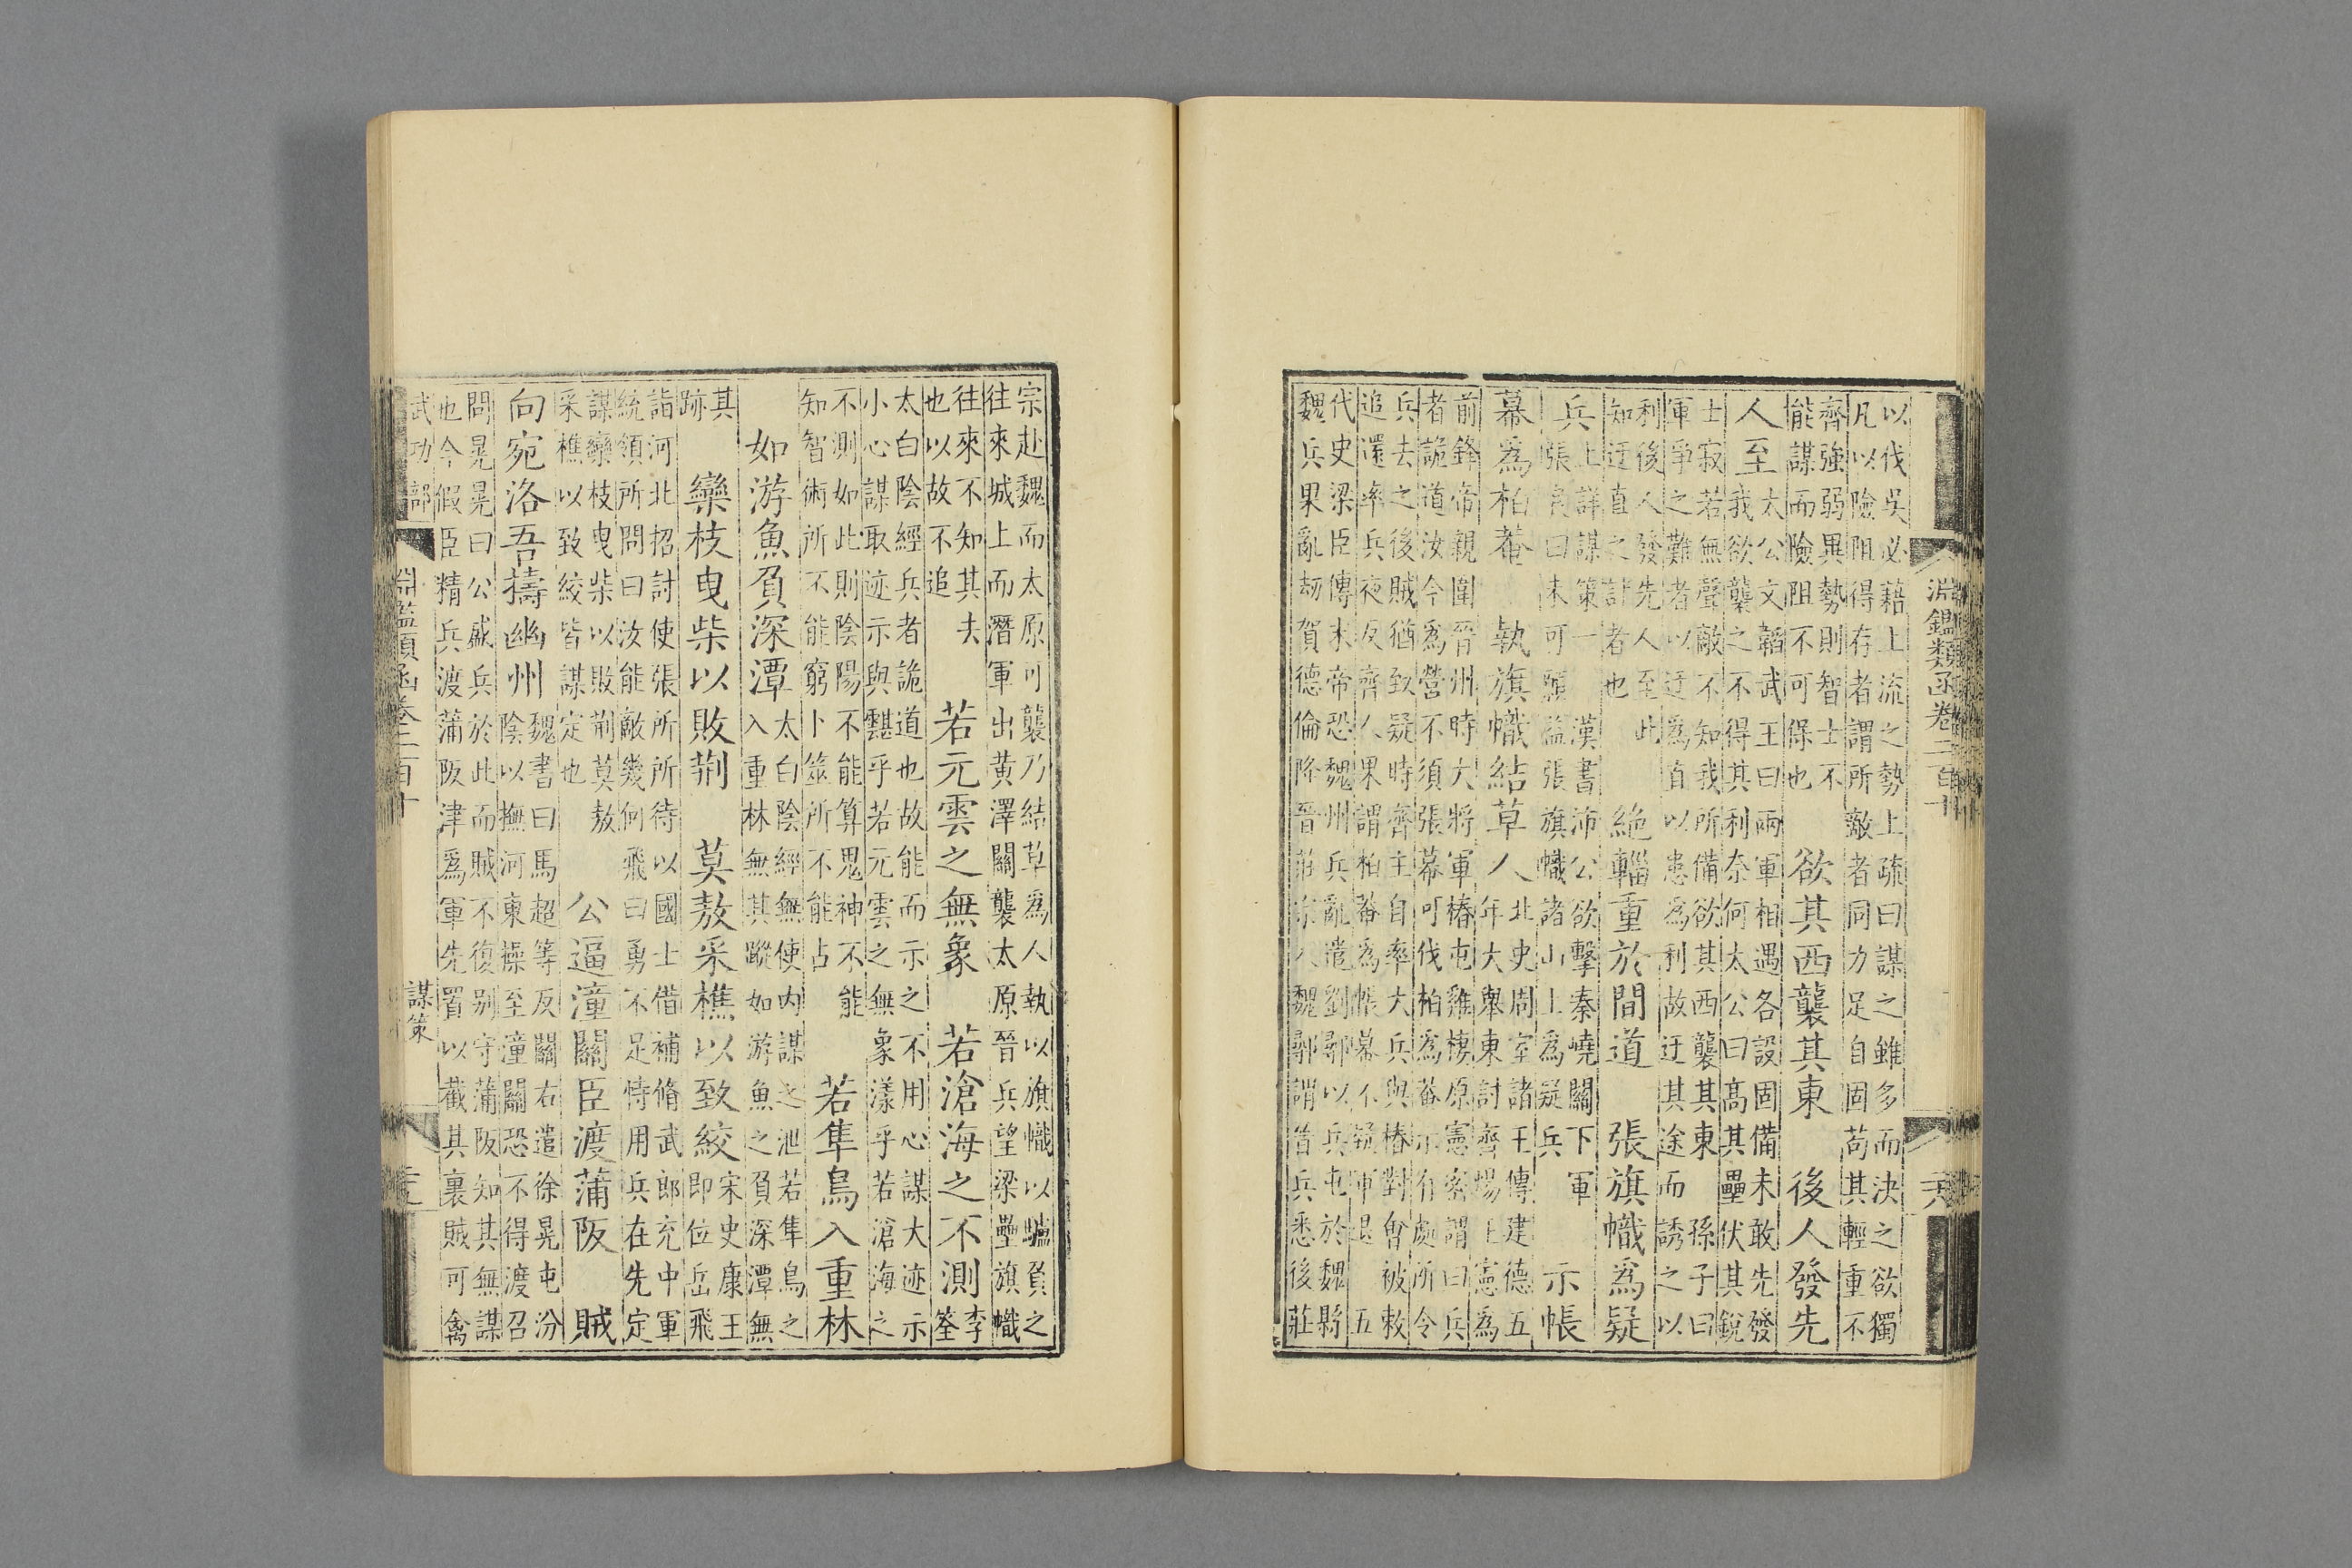 淵鑑類函卷二百十
以伐吳必藉上流之勢上疏曰謀之雖多而決之欲獨
凡以險阻得存者謂所敵者同力足自固苟其輕重不
齊強弱異勢則智士不
能謀而險阻不可保也
欲其西襲其東 後人發先
人至
太公文韜武王曰兩軍相遇各設固備未敢先發
我欲襲之不得其利奈何太公曰高其壘伏其銳
士寂若無聲敵不知我所備欲其西襲其東 孫子曰
軍爭之難者以迂爲直以患爲利故迂其途而誘之以
利後人發先人至此
知迂直之計者也
絶輜重於間道 張旗幟爲疑
兵
上詳謀策一 漢書沛公欲擊秦嶢關下軍
張良曰未可願益張旗幟諸山上爲疑兵
示帳
幕爲柏菴 執旗幟結草人
北史周室諸王傳建德五
年大舉東討齊煬王憲爲
前鋒帝親圍晉州時大將軍椿屯雞棲原憲密謂曰兵
者詭道汝今爲營不須張幕可伐柏爲菴示有處所令
兵去之後賊猶致疑時齊主自率大兵與椿對會被敕
追還率兵夜反齊人果謂柏菴爲帳幕不疑軍退 五
代史梁臣傳末帝恐魏州兵亂遣劉鄩以兵屯於魏縣
魏兵果亂劫賀德倫降晉莊宗入魏鄩謂晉兵悉從莊
宗赴魏而太原可襲乃結草爲人執以旗幟以驢負之
往來城上而潛軍出黃澤關襲太原晉兵望梁壘旗幟
往來不知其去
也以故不追
若元雲之無象 若滄海之不測
李
筌
太白陰經兵者詭道也故能而示之不用心謀大迹示
小心謀取迹示與翳乎若元雲之無象漾乎若滄海之
不測如此則陰陽不能算鬼神不能
知智術所不能窮卜筮所不能占
若隼鳥入重林
如游魚負深潭
太白陰經無使內謀之泄若隼鳥之
入重林無其蹤如游魚之負深潭無
其
跡
欒枝曳柴以敗荆 莫敖采樵以致絞
宋史康王
即位岳飛
詣河北招討使張所所待以國士借補脩武郎充中軍
統領所問曰汝能敵幾何飛曰勇不足恃用兵在先定
謀欒枝曳柴以敗荆莫敖
采樵以致絞皆謀定也
公逼潼關臣渡蒲阪 賊
向宛洛吾擣幽州
魏書曰馬超等反關右遣徐晃屯汾
陰以撫河東操至潼關恐不得渡召
問晃晃曰公盛兵於此而賊不復別守蒲阪知其無謀
也今假臣精兵渡蒲阪津爲軍先置以截其裏賊可禽
武功部 淵鑑類函卷二百十 謀策